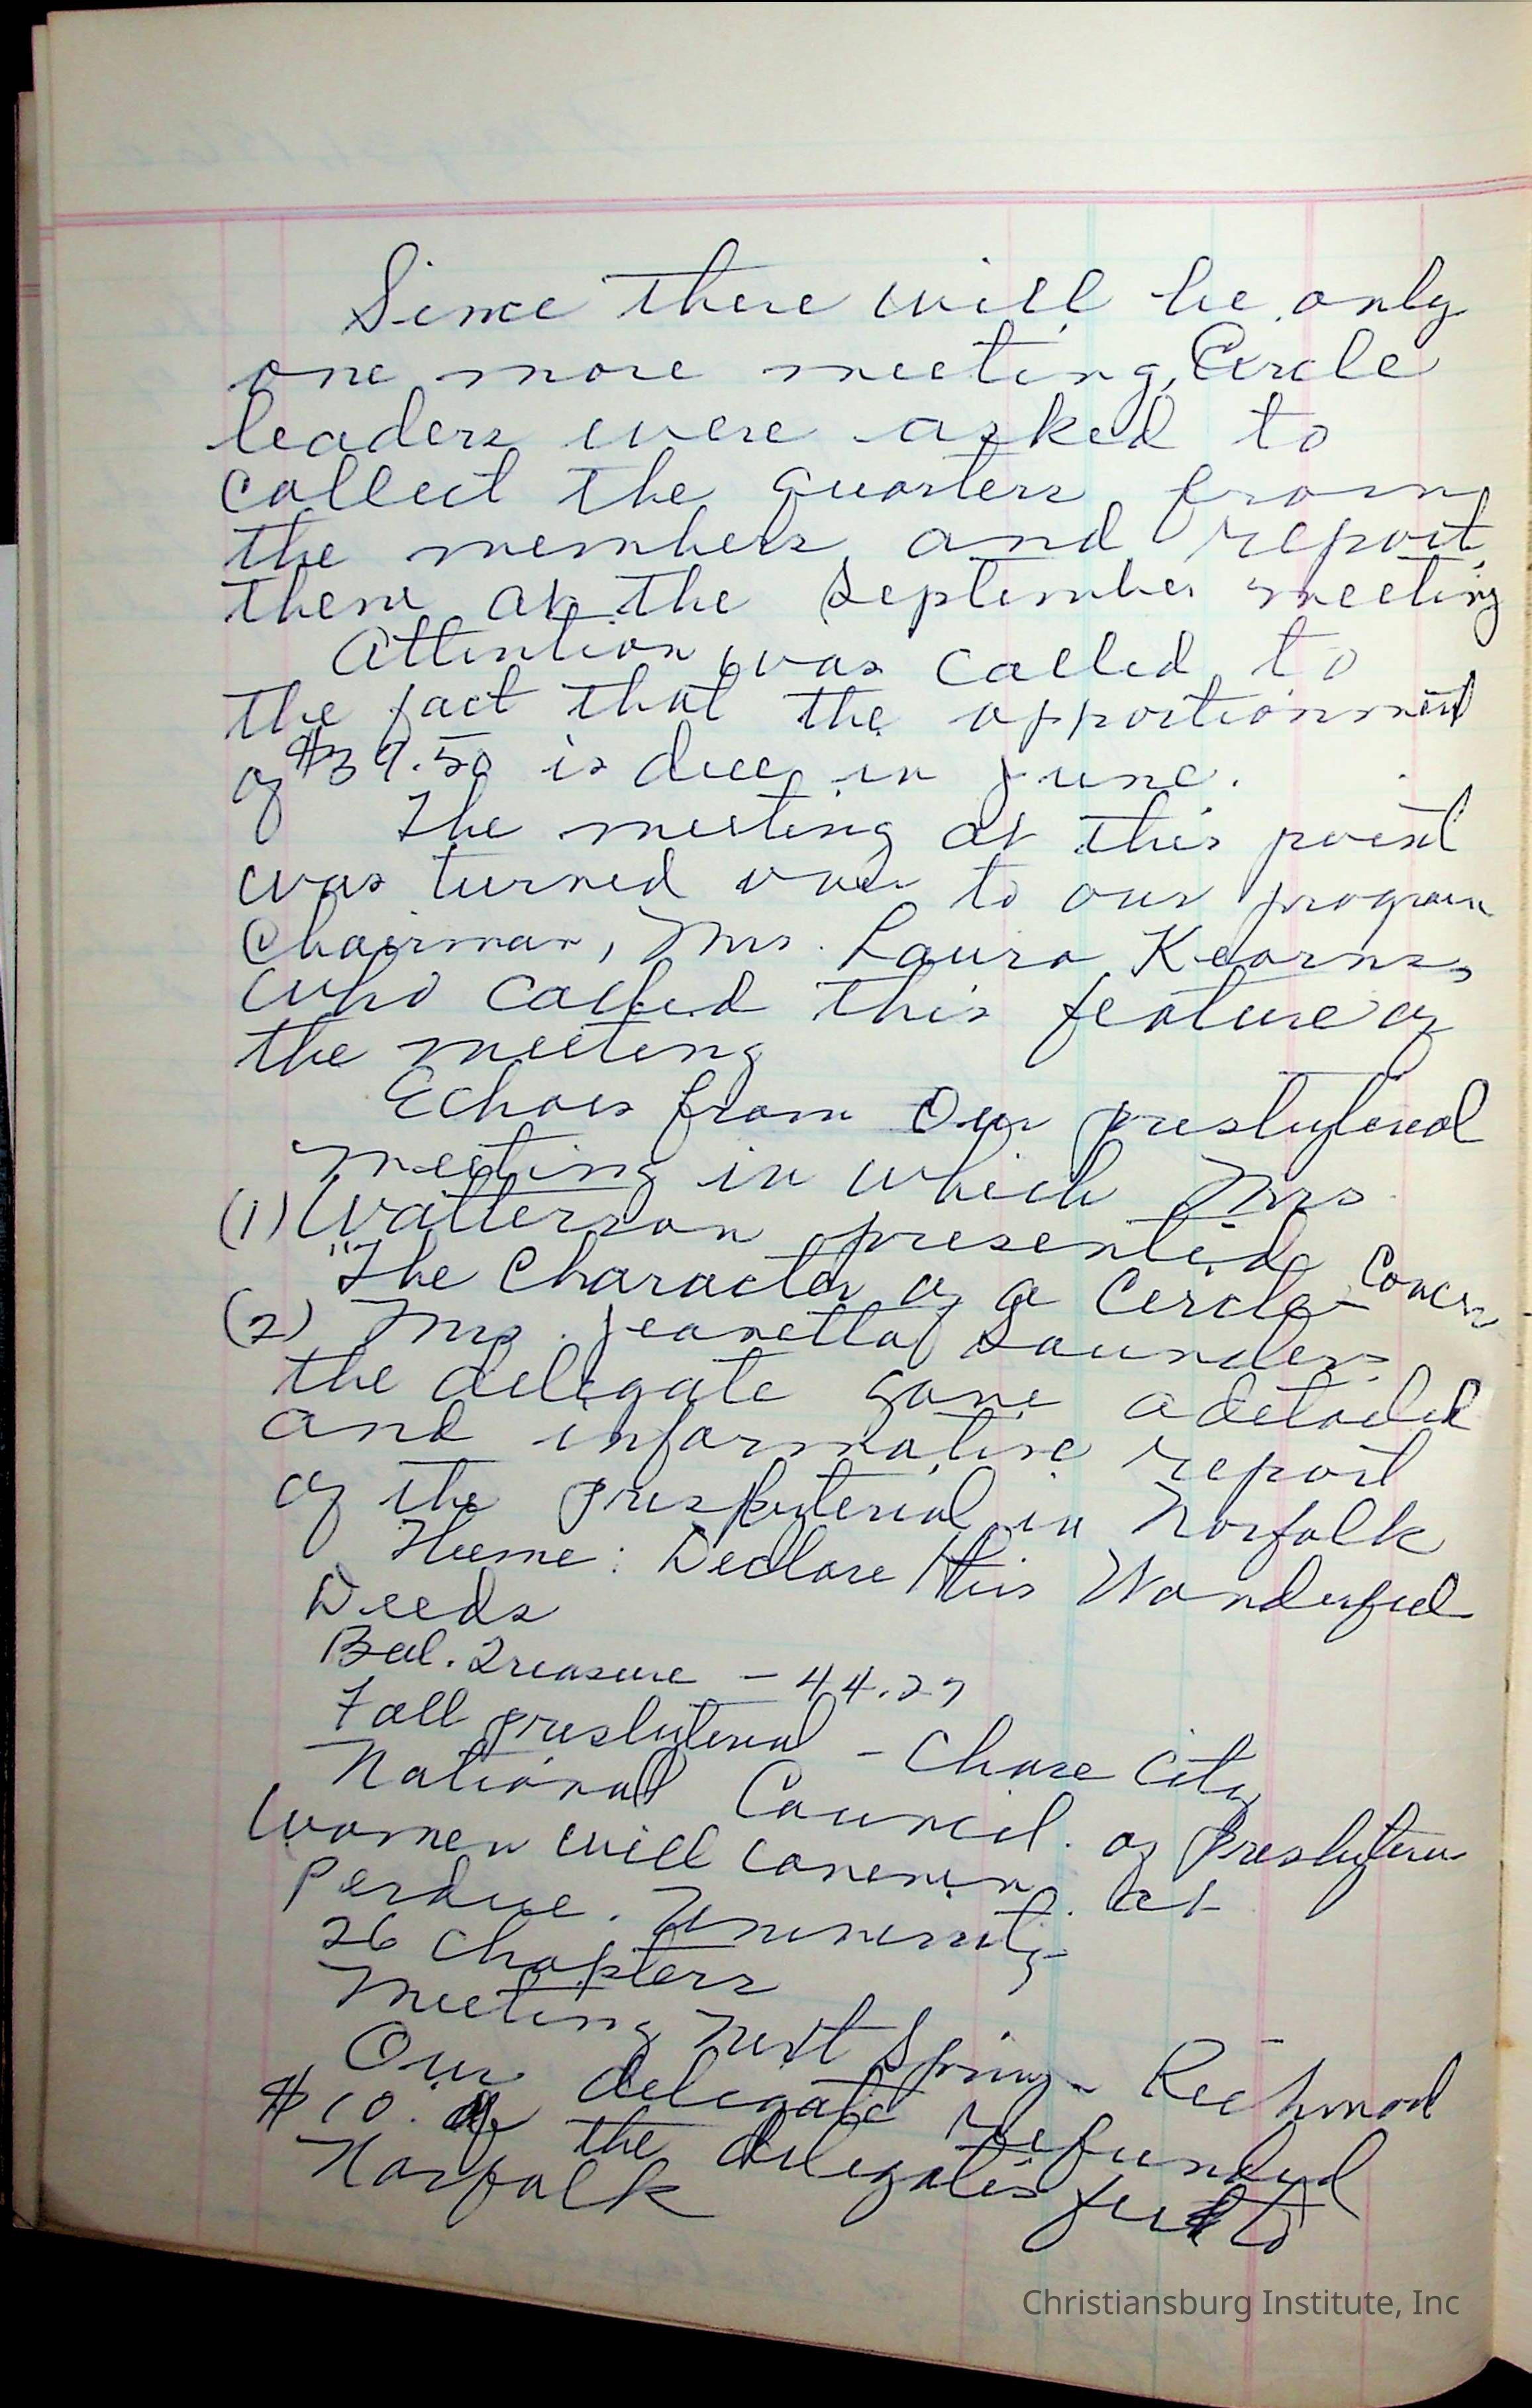 Since there will be only
one more meeting, Circle
leaders were asked to
collect the quarters from
the members and report
them at the September meeting
Attention was called to
the fact that the apportionment
of $39.50 is due in June.
The meeting at this point
was turned over to our program
Chairman, Mrs. Laura Kearns,
who called this feature of
the meeting
Echoes from Our presbyterial
meeting in which Mrs.
(1) Watterson presented
"The Character of a Circle Concern
(2) Mrs. Jeanetta Saunders
the delegate gave a detailed
and informative report
of the presbyterial in Norfolk
Theme: Declare His Wonderful
Deeds
Bal. Treasure - 44.27
Fall presbyterial - Chase City
National Council of Presbyterian
women will convene at
Perdue University
26 Chapters
Meeting next Spring - Richmond
Our delegate refunded
$10. of the delegates fee to
Norfolk
Christiansburg Institute, Inc